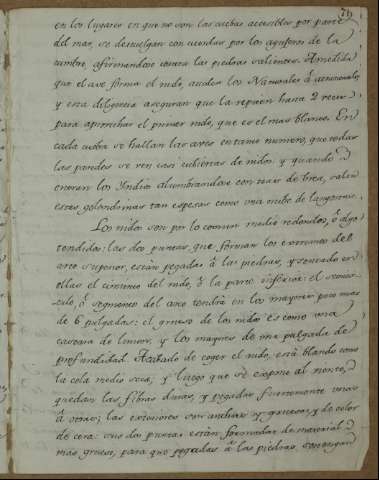 79
en los lugares en que no son las cuebas accesibles por parte
del mar, se descuelgan con cuerdas por los agujeros de la
cumbre afirmandose contra las piedras salientes. A medida
que el ave forma el nido, acuden los Naturales á arrancarlo,
y esta diligencia aseguran que la repiten hasta 2 veces
para aprovechar el primer nido, que es el mas blanco. En
cada cueba se hallan las aves en tanto numero, que todas
las paredes se ven casi cubiertas de nidos: y quando
entran los Yndios alumbrandose con teas de brea, salen
estas golondrinas tan espesas como una nube de langostas.
Los nidos son por lo comun medio redondos, ó algo
tendidos: las dos puntas que forman los extremos del
arco superior, estan pegadas á las piedras, y
ellas el circuito del nido, ó la parte inferior: el
culo, ó segmento del arco tendrá en los mayores poco mas
de 6 pulgadas: el grueso de los nidos es como una
cascara de limon, y los mayores de una pulgada de
profundidad. Acabado de coger el nido, está blando como
la cola medio seca, y luego que se expone al
quedan las fibras duras, y pegadas fuertemente unas
á otras; las exteriores son anchas y gruesas, y de color
de cera: sus dos puntas estan formadas de material
mas grueso, para que pegadas á las piedras, sostengan